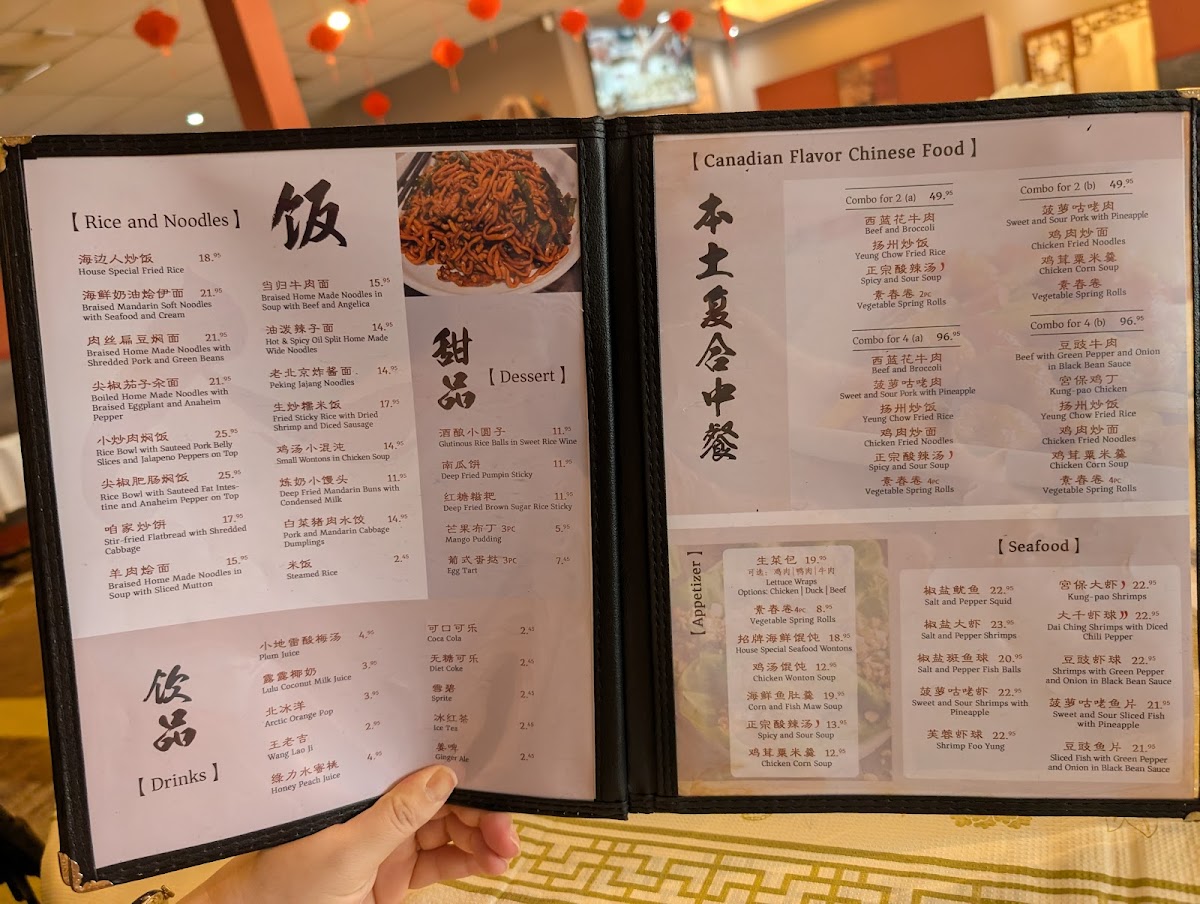 【 Rice and Noodles 】
饭
海边人炒饭 18.95
House Special Fried Rice
海鲜奶油烩伊面 21.95
Braised Mandarin Soft Noodles
with Seafood and Cream
肉丝扁豆焖面 21.95
Braised Home Made Noodles with
Shredded Pork and Green Beans
尖椒茄子杂面 21.95
Boiled Home Made Noodles with
Braised Eggplant and Anaheim
Pepper
小炒肉焖饭 25.95
Rice Bowl with Sauteed Pork Belly
Slices and Jalapeno Peppers on Top
尖椒肥肠焖饭 25.95
Rice Bowl with Sauteed Fat Intes-
tine and Anaheim Pepper on Top
咱家炒饼 17.95
Stir-fried Flatbread with Shredded
Cabbage
羊肉烩面 15.95
Braised Home Made Noodles in
Soup with Sliced Mutton
当归牛肉面 15.95
Braised Home Made Noodles in
Soup with Beef and Angelica
油泼辣子面 14.95
Hot & Spicy Oil Split Home Made
Wide Noodles
老北京炸酱面 14.95
Peking Jajang Noodles
生炒糯米饭 17.95
Fried Sticky Rice with Dried
Shrimp and Diced Sausage
鸡汤小混沌 14.95
Small Wontons in Chicken Soup
炼奶小馒头 11.95
Deep Fried Mandarin Buns with
Condensed Milk
白菜猪肉水饺 14.95
Pork and Mandarin Cabbage
Dumplings
米饭 2.45
Steamed Rice
甜品
【 Dessert 】
酒酿小圆子 11.95
Glutinous Rice Balls in Sweet Rice Wine
南瓜饼 11.95
Deep Fried Pumpin Sticky
红糖糍粑 11.95
Deep Fried Brown Sugar Rice Sticky
芒果布丁 3PC 5.95
Mango Pudding
葡式蛋挞 3PC 7.45
Egg Tart
饮品
【 Drinks 】
小地雷酸梅汤 4.95
Plum Juice
露露椰奶 3.90
Lulu Coconut Milk Juice
北冰洋 3.95
Arctic Orange Pop
王老吉 2.95
Wang Lao Ji
绿力水蜜桃 4.95
Honey Peach Juice
可口可乐 2.45
Coca Cola
无糖可乐 2.45
Diet Coke
雪碧 2.45
Sprite
冰红茶 2.45
Ice Tea
姜啤 2.45
Ginger Ale
【 Canadian Flavor Chinese Food 】
本土复合中餐
Combo for 2 (a) 49.95
西蓝花牛肉
Beef and Broccoli
扬州炒饭
Yeung Chow Fried Rice
正宗酸辣汤
Spicy and Sour Soup
素春卷 2PC
Vegetable Spring Rolls
Combo for 2 (b) 49.95
菠萝咕咾肉
Sweet and Sour Pork with Pineapple
鸡肉炒面
Chicken Fried Noodles
鸡茸粟米羹
Chicken Corn Soup
素春卷
Vegetable Spring Rolls
Combo for 4 (a) 96.95
西蓝花牛肉
Beef and Broccoli
菠萝咕咾肉
Sweet and Sour Pork with Pineapple
扬州炒饭
Yeung Chow Fried Rice
鸡肉炒面
Chicken Fried Noodles
正宗酸辣汤
Spicy and Sour Soup
素春卷 4PC
Vegetable Spring Rolls
Combo for 4 (b) 96.95
豆豉牛肉
Beef with Green Pepper and Onion
in Black Bean Sauce
宫保鸡丁
Kung-pao Chicken
扬州炒饭
Yeung Chow Fried Rice
鸡肉炒面
Chicken Fried Noodles
鸡茸粟米羹
Chicken Corn Soup
素春卷 4PC
Vegetable Spring Rolls
【 Appetizer 】
生菜包 19.95
可选：鸡肉|鸭肉|牛肉
Lettuce Wraps
Options: Chicken | Duck | Beef
素春卷4PC 8.95
Vegetable Spring Rolls
招牌海鲜馄饨 18.95
House Special Seafood Wontons
鸡汤馄饨 12.95
Chicken Wonton Soup
海鲜鱼肚羹 19.95
Corn and Fish Maw Soup
正宗酸辣汤 13.95
Spicy and Sour Soup
鸡茸粟米羹 12.95
Chicken Corn Soup
【 Seafood 】
椒盐鱿鱼 22.95
Salt and Pepper Squid
椒盐大虾 23.95
Salt and Pepper Shrimps
椒盐斑鱼球 20.95
Salt and Pepper Fish Balls
菠萝咕咾虾 22.95
Sweet and Sour Shrimps with
Pineapple
芙蓉虾球 22.95
Shrimp Foo Yung
宫保大虾 22.95
Kung-pao Shrimps
大千虾球 22.95
Dai Ching Shrimps with Diced
Chili Pepper
豆豉虾球 22.95
Shrimps with Green Pepper
and Onion in Black Bean Sauce
菠萝咕咾鱼片 21.95
Sweet and Sour Sliced Fish
with Pineapple
豆豉鱼片 21.95
Sliced Fish with Green Pepper
and Onion in Black Bean Sauce